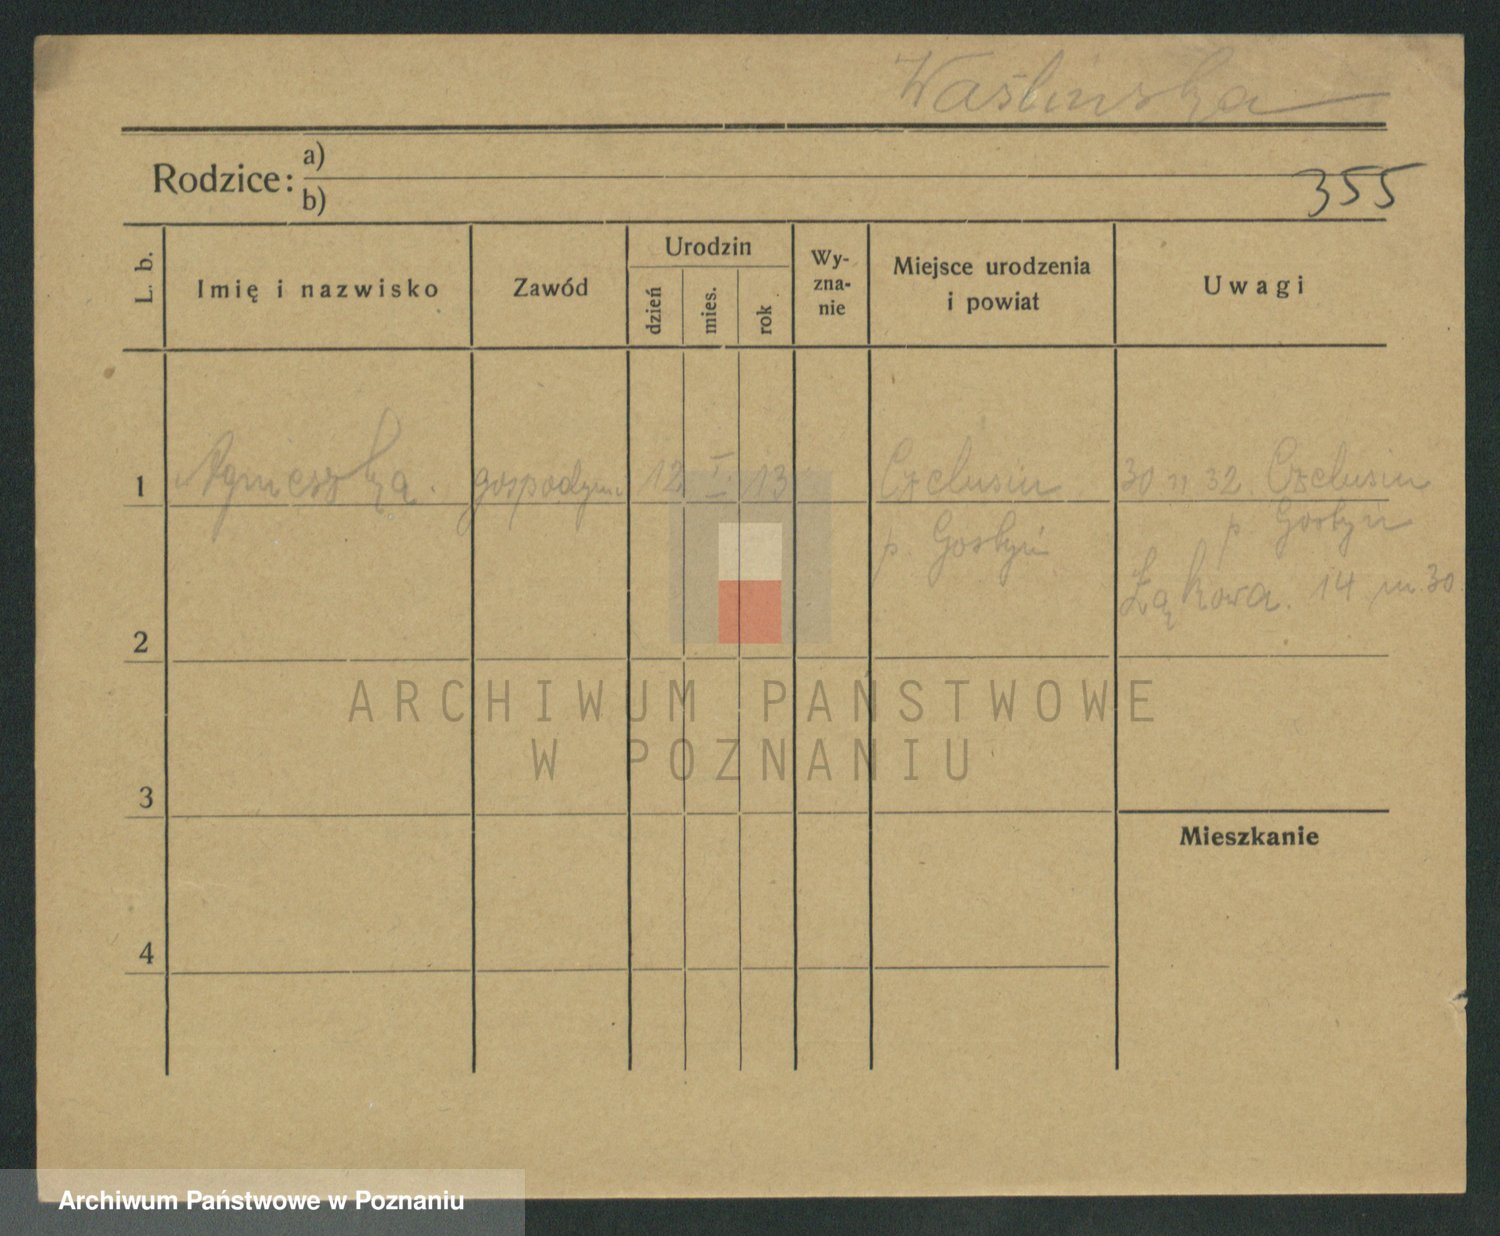 Waślińska
Rodzice: a)
b)
355
L. b. Imię i nazwisko Zawód Urodzin dzień mies. rok Wy-zna-nie Miejsce urodzenia i powiat Uwagi
1 Agnieszka. gospodyni 12 I 13 Czelusin 30 32. Czelusin
p. Gostyń p. Gostyń
Łąkowa. 14 m. 30.
2
ARCHIWUM PAŃSTWOWE
W POZNANIU
3
Mieszkanie
4
Archiwum Państwowe w Poznaniu